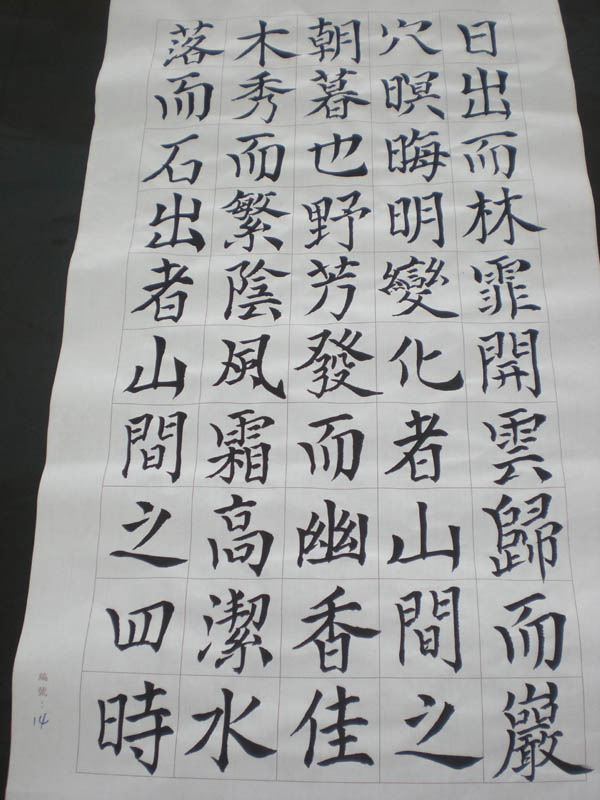 日出而林霏開雲歸而巖
穴暝晦明變化者山間之
朝暮也野芳發而幽香佳
木秀而繁陰風霜高潔水
落而石出者山間之四時
編號：14